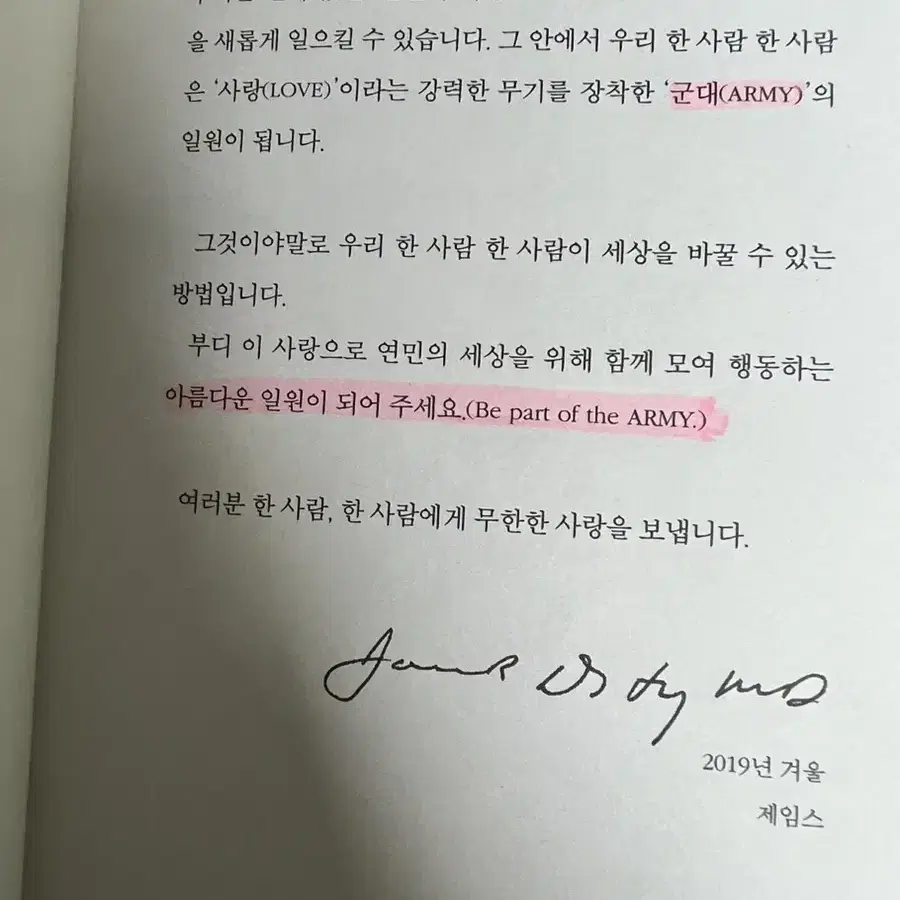 을 새롭게 일으킬 수 있습니다. 그 안에서 우리 한 사람 한 사람
은 ‘사랑(LOVE)’이라는 강력한 무기를 장착한 ‘군대(ARMY)’의
일원이 됩니다.
그것이야말로 우리 한 사람 한 사람이 세상을 바꿀 수 있는
방법입니다.
부디 이 사랑으로 연민의 세상을 위해 함께 모여 행동하는
아름다운 일원이 되어 주세요.(Be part of the ARMY.)
여러분 한 사람, 한 사람에게 무한한 사랑을 보냅니다.
2019년 겨울
제임스